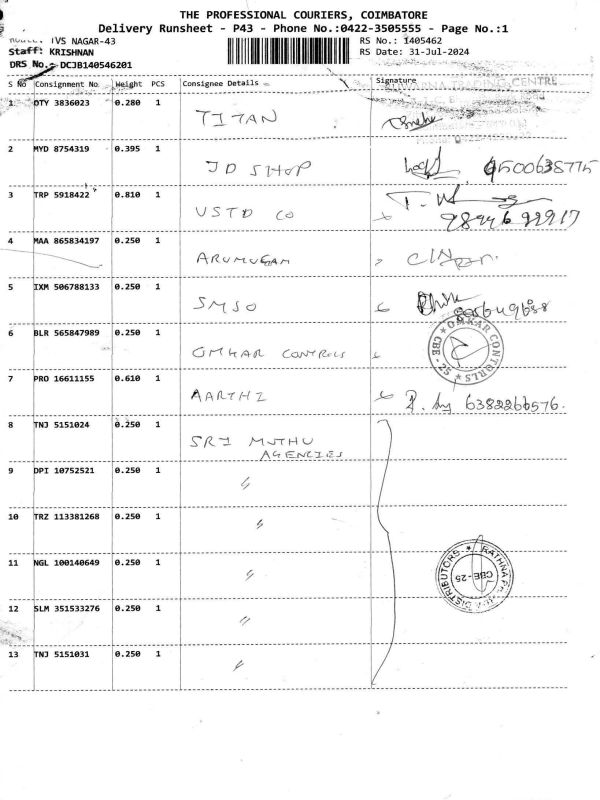 THE PROFESSIONAL COURIERS, COIMBATORE
Delivery Runsheet - P43 - Phone No.:0422-3505555 - Page No.:1
TVS NAGAR-43
RS No.: 1405462
Staff: KRISHNAN
RS Date: 31-Jul-2024
DRS No.- DCJB140546201
S No Consignment No. Weight PCS Consignee Details Signature
CENTRE
1 OTY 3836023 0.280 1 TITAN
2 MYD 8754319 0.395 1 JD SHOP 9500638775
3 TRP 5918422 0.810 1 VSTD CO
4 MAA 865834197 0.250 1 ARUMUGAM
5 IXM 506788133 0.250 1 SMSO
6 BLR 565847989 0.250 1 OMKAR CONTROLS
OMKAR CONTORLS CBE - 25
7 PRO 16611155 0.610 1 AARTHI 6382266576.
8 TNJ 5151024 0.250 1 SRI MUTHU
AGENCIES
9 DPI 10752521 0.250 1 "
10 TRZ 113381268 0.250 1 "
11 NGL 100140649 0.250 1 "
RATHNA DISTRIBUTORS CBE-25
12 SLM 351533276 0.250 1 "
13 TNJ 5151031 0.250 1 "